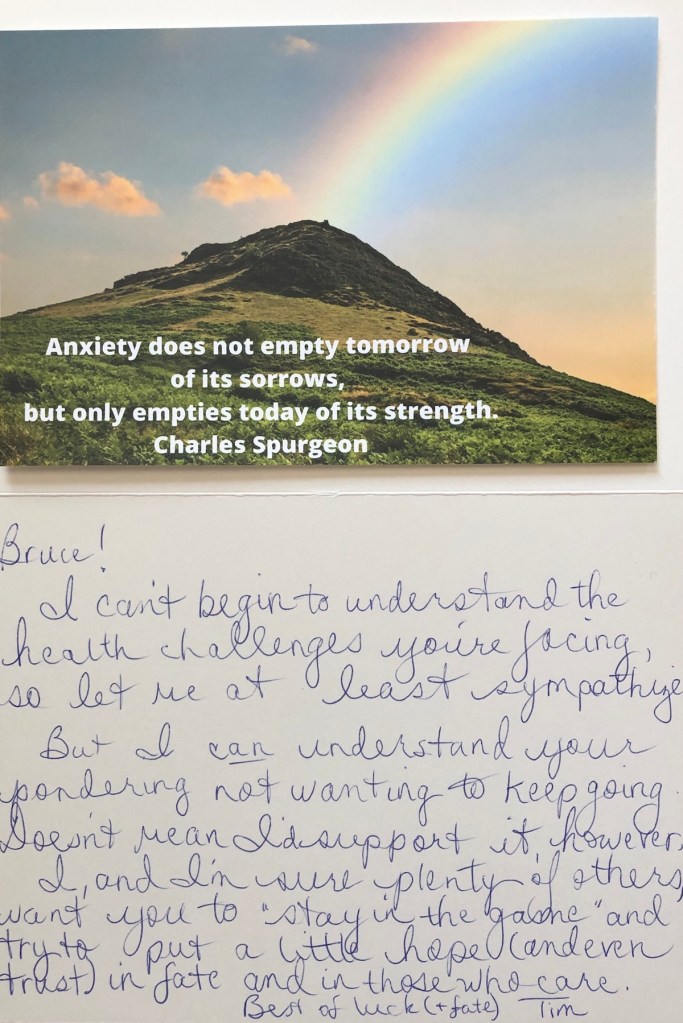 Anxiety does not empty tomorrow
of its sorrows,
but only empties today of its strength.
Charles Spurgeon
Bruce!
I can't begin to understand the
health challenges you're facing,
so let me at least sympathize
But I can understand your
pondering not wanting to keep going.
Doesn't mean I'd support it, however.
I, and I'm sure plenty of others,
want you to "stay in the game" and
try to put a little hope (and even
trust) in fate and in those who care.
Best of luck (+ fate) Tim